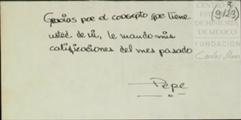 Gracias por el concepto que tiene
usted de mi, le mando mis
calificaciones del mes pasado
Pepe
CENTRO
DE HISTORIA
DE MEXICO
FUNDACION
Carlos Slim